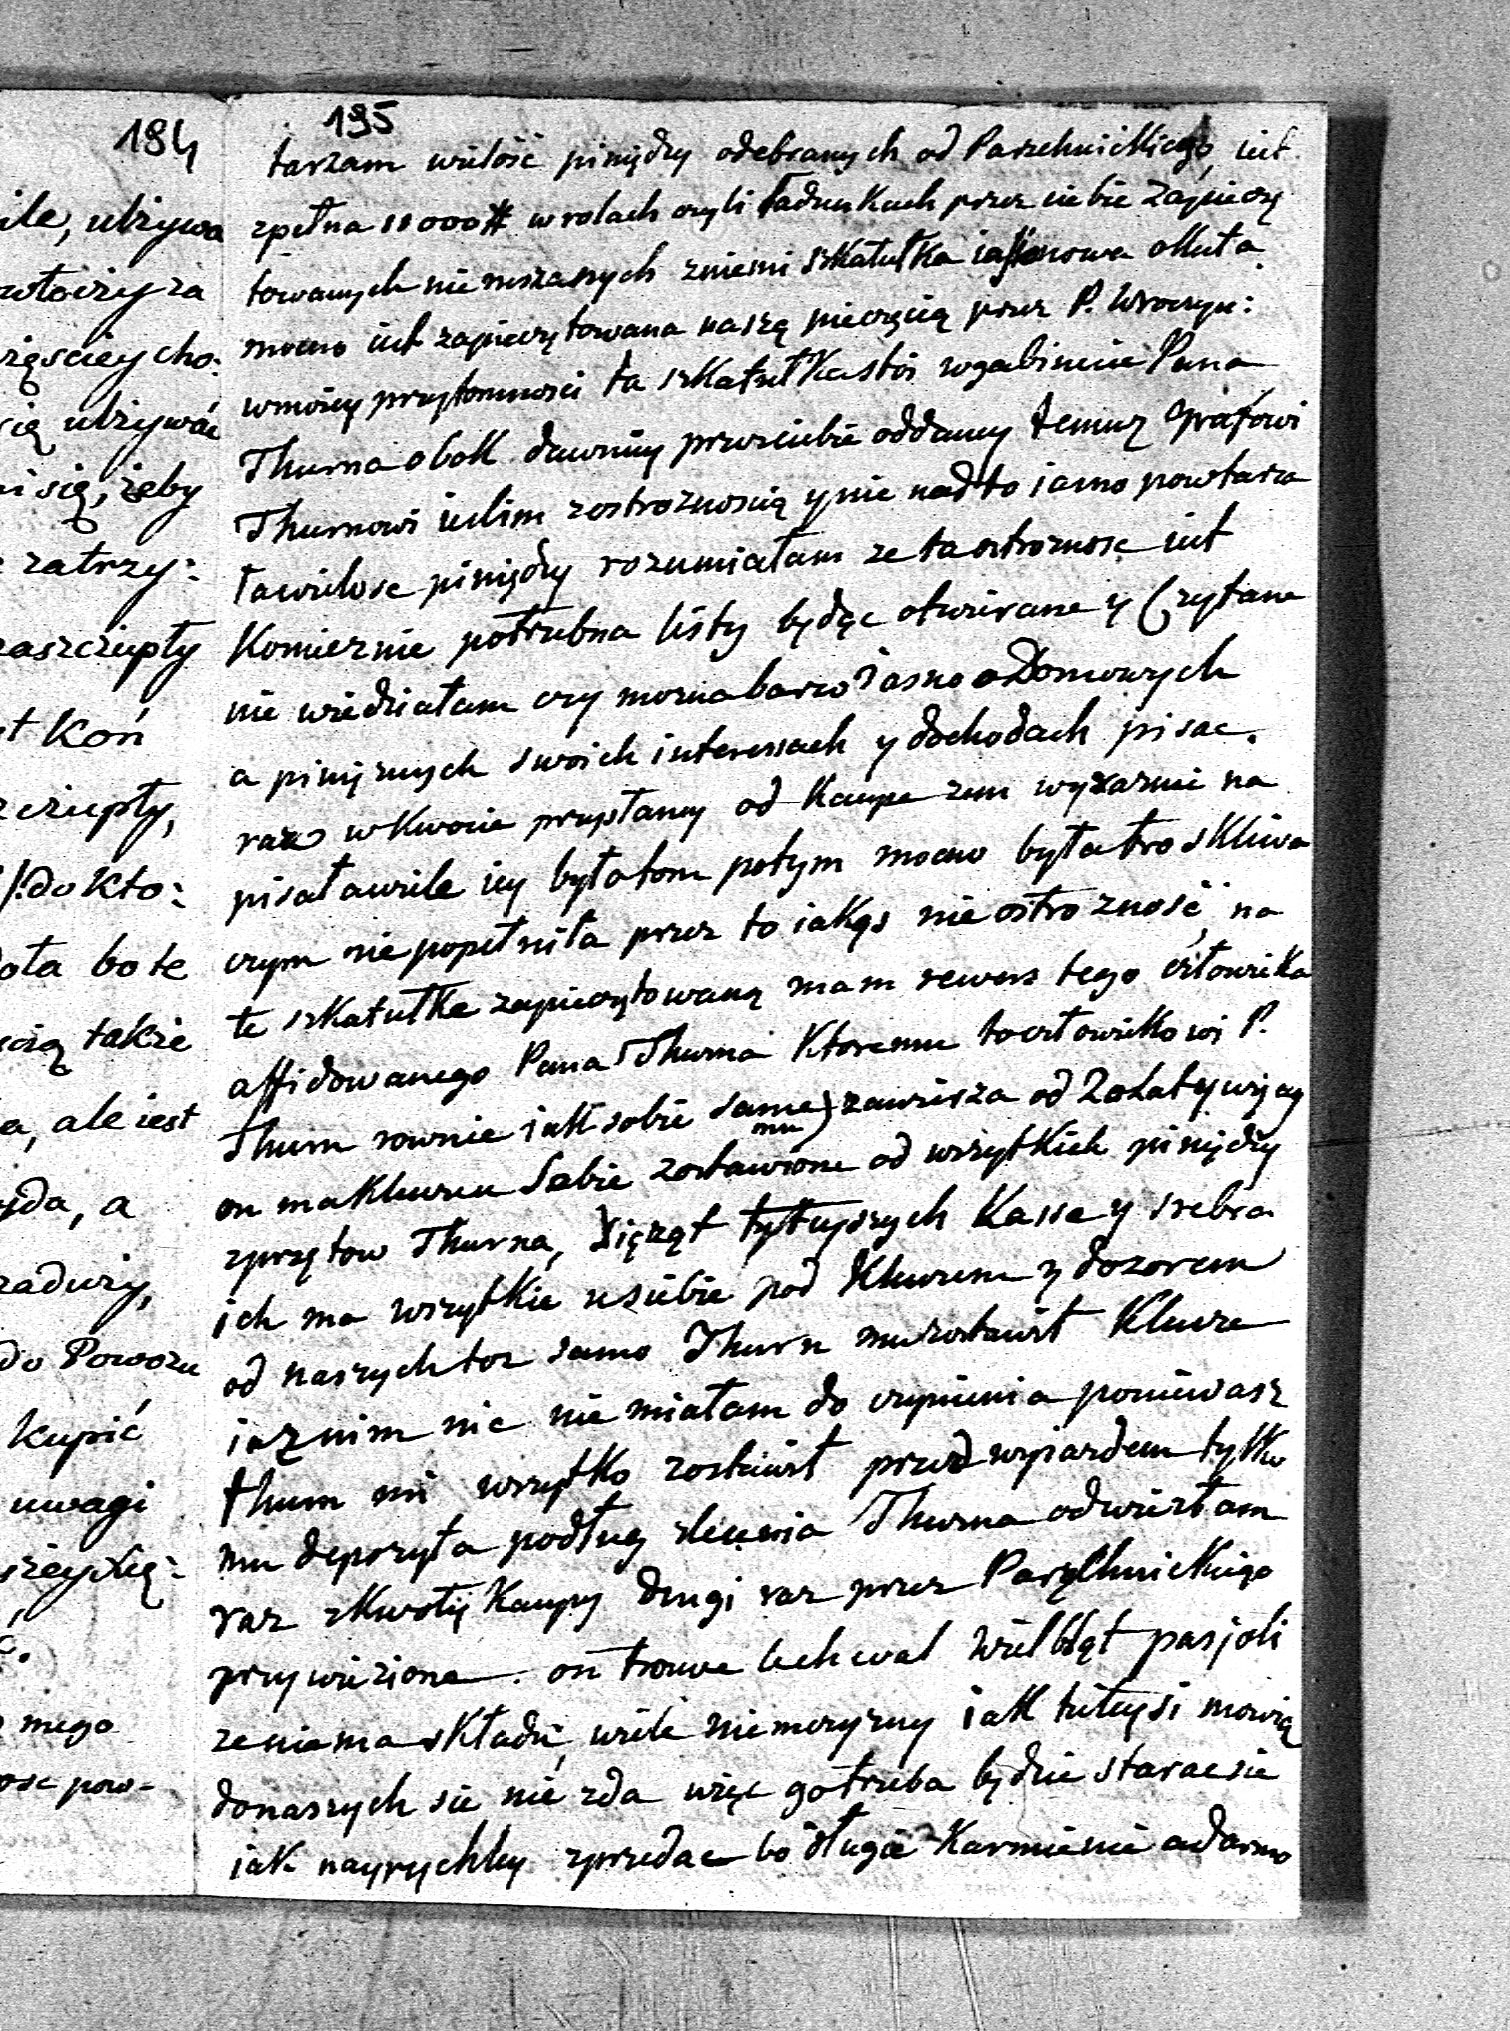 184
ile, używa
włoży za
zęściey cho:
się używać
ni się, żeby
zatrzy:
zaszczupły
st koń
szczupły,
/:do kto:
oła bo te
ścią także
a, ale iest
yda, a
zaduży,
do Powozu
kupić
uwagi
szeynię:
mego
ość pow-
195
tarzam wielość piniędzy odebranych od Parzchnickiego, iest
zpełna 11000# w rolach czyli ładunkach przez ciebie zapieczę
towanych nie ruszanych zniemi szkatułka iasionowa okuta
mocno iest zapieczętowana naszą pieczęcią przez P. Wroczyn:
w moiey przytomności ta szkatułka stoi w gabinecie Pana
Thurna obok dawniey przez ciebie oddaney temuz Grafowi
Thurnowi ieslim z ostroznoscią y nie nadto iasno powtarza
ła wielosc piniędzy rozumiałam ze ta ostroznosc iest
koniecznie potrzebna listy będąc otwierane y Czytane
nie wiedziałam czy mozna barzo iasno o Domowych
a piniężnych swoich interessach y dochodach pisac.
raz o kwocie przysłaney od Kaupe zem wyraznie na
pisała wiele iey była tom potym mocno była troskliwa
czym nie popełniła przez to iakąs nie ostrozność, na
te szkatułke zapieczętowaną mam rewers tego człowieka
affidowanego Pana Thurna ktoremu to człowiekowi P.
Thurn rownie iak sobie same) zawierza od 20 lat y więcy
mu)
on ma klucze u Siebie zostawione od wszytkich piniędzy
sprzętow Thurna, Xiążąt tytuyszych Kasse y srebra
ich ma wszytkie u siebie pod kluczem y dozorem
od naszych toz samo Thurn mu zostawił klucze
ia z nim nic nie miałam do czynienia poniewasz
thurn mi wszytko zostawił przed wyiazdem tylko
mu depozyta podług zlecenia Thurna odwiozłam
raz z kwoty Kaupy drugi raz przez Parzchnickiego
przywieziona. on trouve le cheval wielbłąt pas joli
ze nie ma składu, wiele niemczyzny iak tuteysi mowią
do naszych sie nie zda więc go trzeba będzie starac sie
iak nayrychley zprzedac bo długie karmienie a darmo